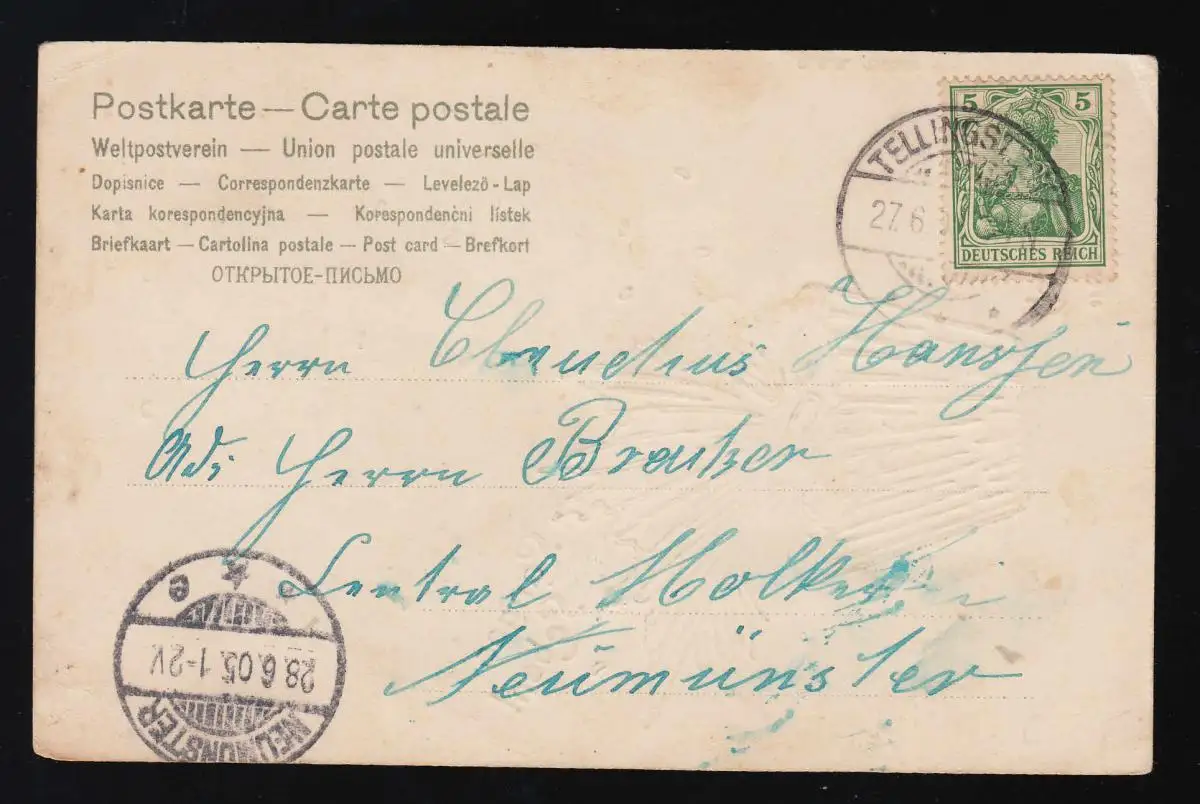 Postkarte — Carte postale
Weltpostverein — Union postale universelle
Dopisnice — Correspondenzkarte — Levelező-Lap
Karta korespondencyjna — Korespondenčni lístek
Briefkaart — Cartolina postale — Post card — Brefkort
ОТКРЫТОЕ-ПИСЬМО
5 5
DEUTSCHES REICH
TELLINGST
27.6
Herrn Claudius Hanssen
Adr. Herrn Braker
Central Molkerei
Neumünster
28.6.05. 1-2V.
NEUMÜNSTER